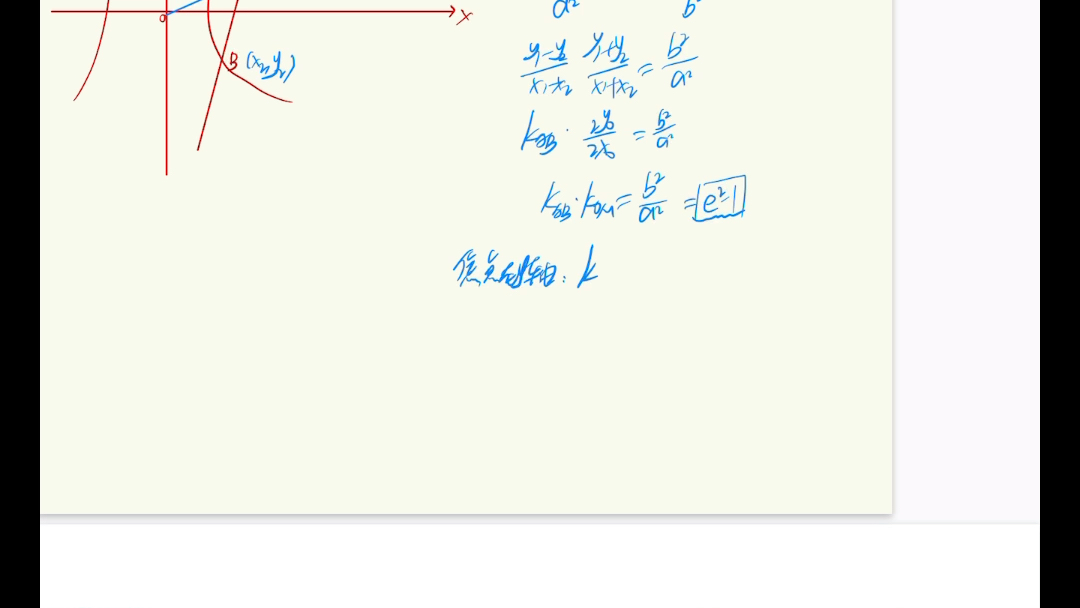 a² b²
O x
B (x₂,y₂)
y₁-y₂/x₁-x₂ · y₁+y₂/x₁+x₂ = b²/a²
k_AB · 2y₀/2x₀ = b²/a²
k_AB · k_OM = b²/a² = e²-1
焦点在 轴: k